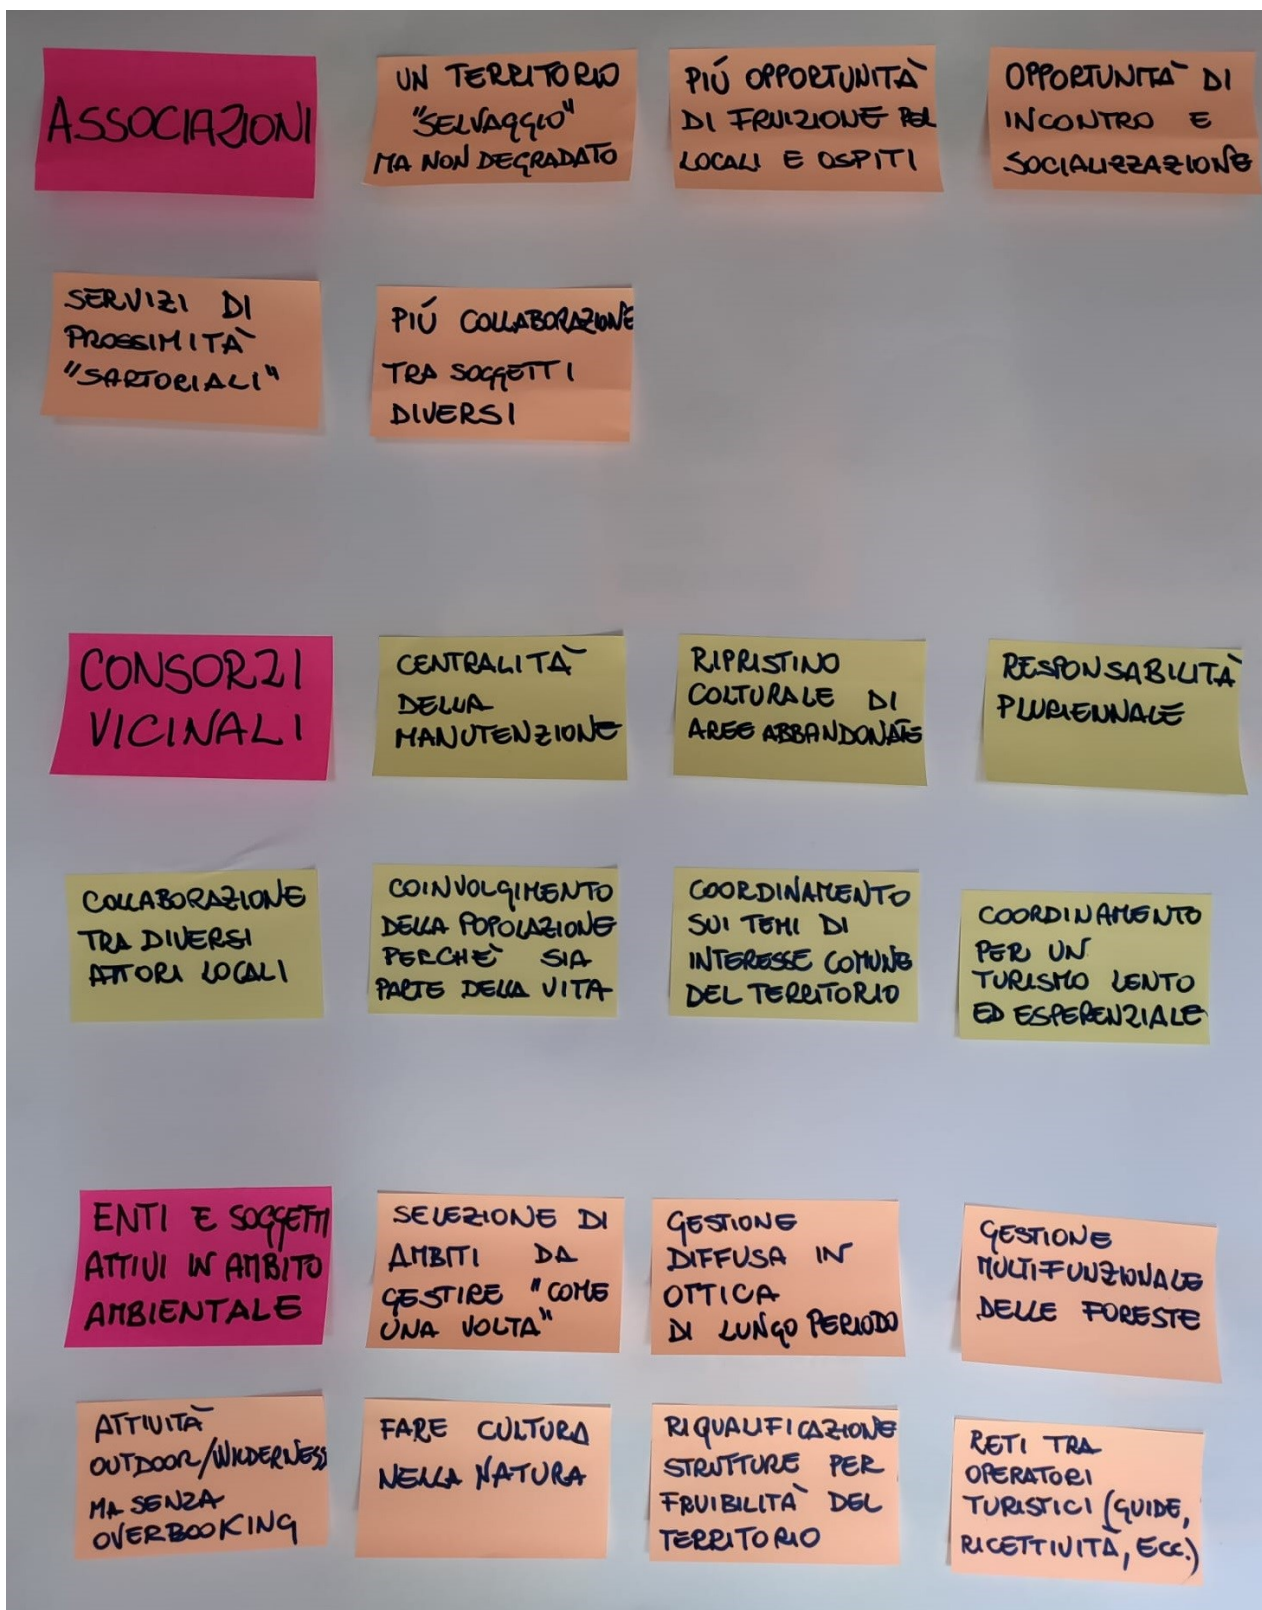 ASSOCIAZIONI
UN TERRITORIO
"SELVAGGIO"
MA NON DEGRADATO
PIÚ OPPORTUNITÀ
DI FRUIZIONE PER
LOCALI E OSPITI
OPPORTUNITÀ DI
INCONTRO E
SOCIALIZZAZIONE
SERVIZI DI
PROSSIMITÀ
"SARTORIALI"
PIÚ COLLABORAZIONE
TRA SOGGETTI
DIVERSI
CONSORZI
VICINALI
CENTRALITÀ
DELLA
MANUTENZIONE
RIPRISTINO
COLTURALE DI
AREE ABBANDONATE
RESPONSABILITÀ
PLURIENNALE
COLLABORAZIONE
TRA DIVERSI
ATTORI LOCALI
COINVOLGIMENTO
DELLA POPOLAZIONE
PERCHÈ SIA
PARTE DELLA VITA
COORDINAMENTO
SUI TEMI DI
INTERESSE COMUNE
DEL TERRITORIO
COORDINAMENTO
PER UN
TURISMO LENTO
ED ESPERENZIALE
ENTI E SOGGETTI
ATTIVI IN AMBITO
AMBIENTALE
SELEZIONE DI
AMBITI DA
GESTIRE "COME
UNA VOLTA"
GESTIONE
DIFFUSA IN
OTTICA
DI LUNGO PERIODO
GESTIONE
MULTIFUNZIONALE
DELLE FORESTE
ATTIVITÀ
OUTDOOR/WILDERNESS
MA SENZA
OVERBOOKING
FARE CULTURA
NELLA NATURA
RIQUALIFICAZIONE
STRUTTURE PER
FRUIBILITÀ DEL
TERRITORIO
RETI TRA
OPERATORI
TURISTICI (GUIDE,
RICETTIVITÀ, ECC.)